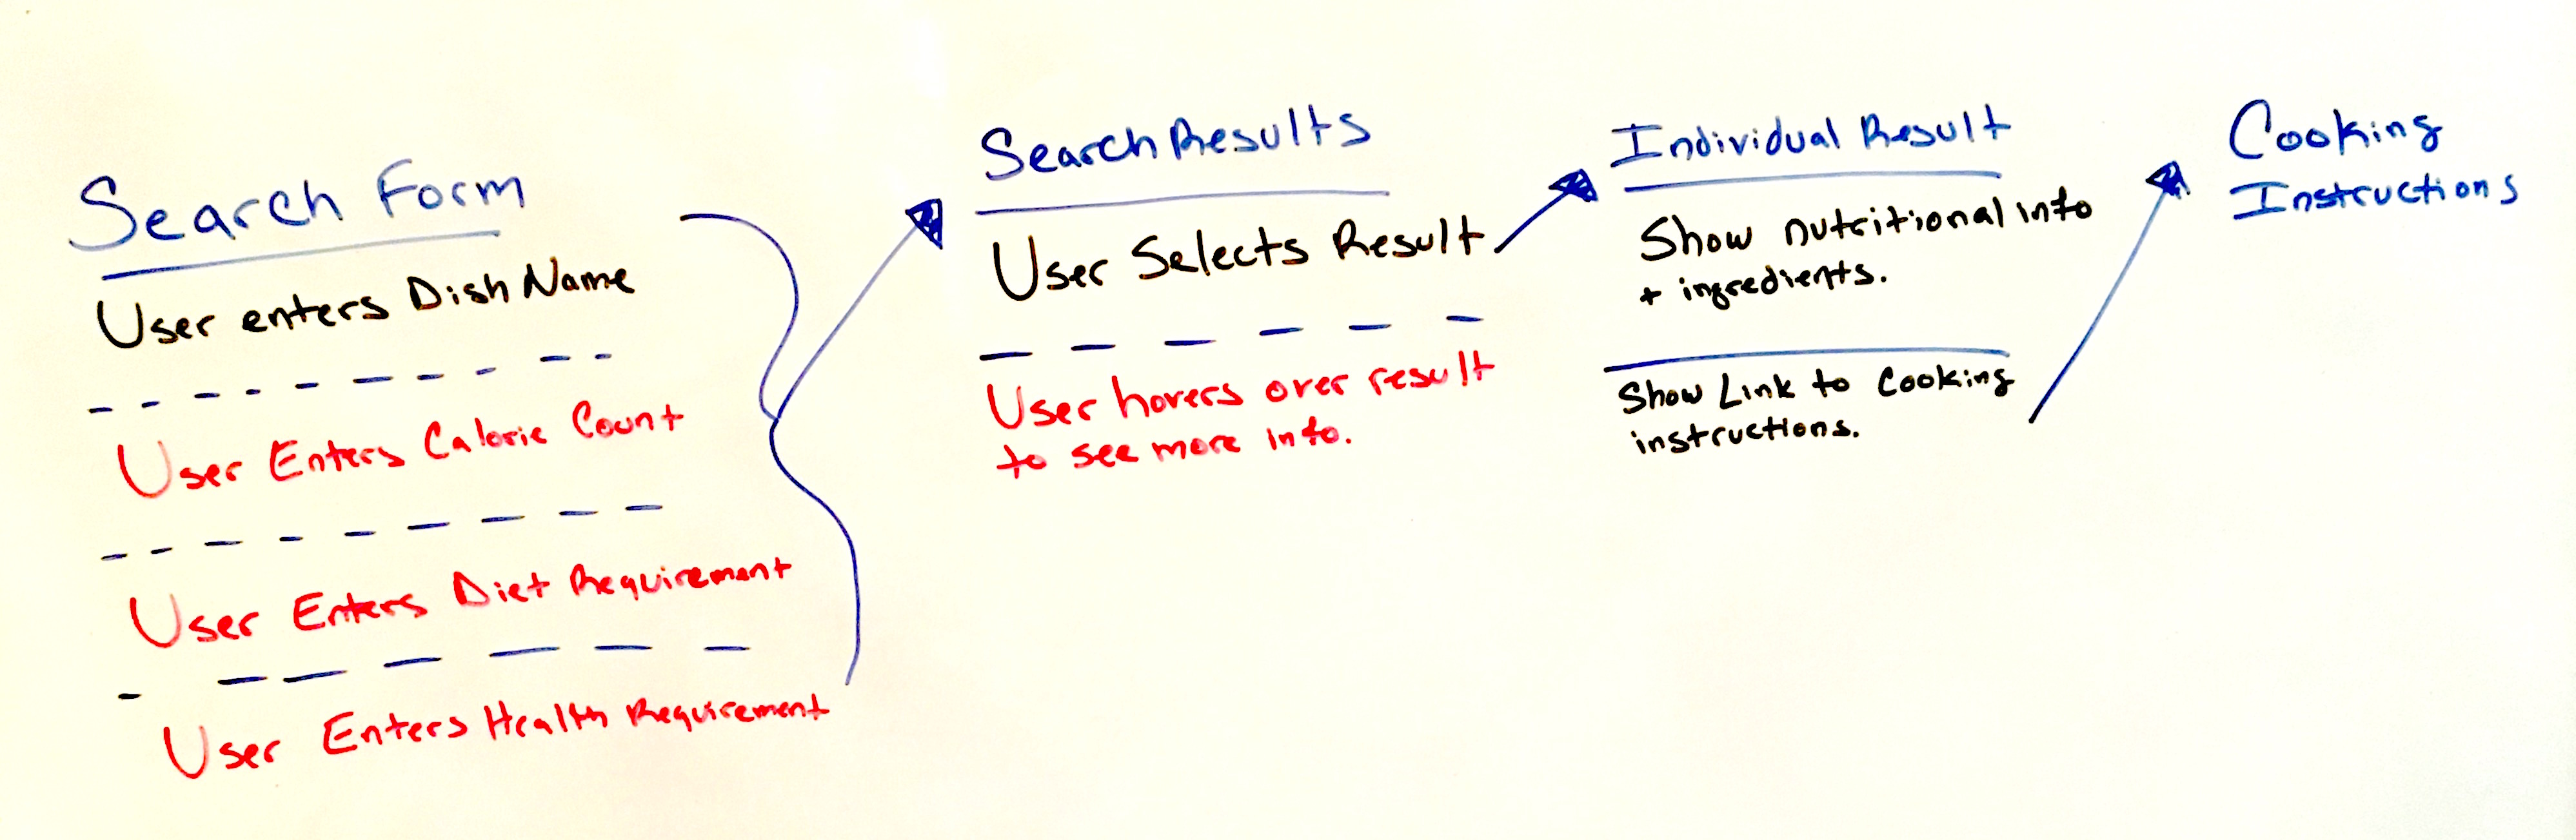 Search Form
User enters Dish Name
User Enters Calorie Count
User Enters Diet Requirement
User Enters Health Requirement
Search Results
User Selects Result
User hovers over result
to see more info.
Individual Result
Show nutritional info
+ ingredients.
Show Link to Cooking
instructions.
Cooking
Instructions